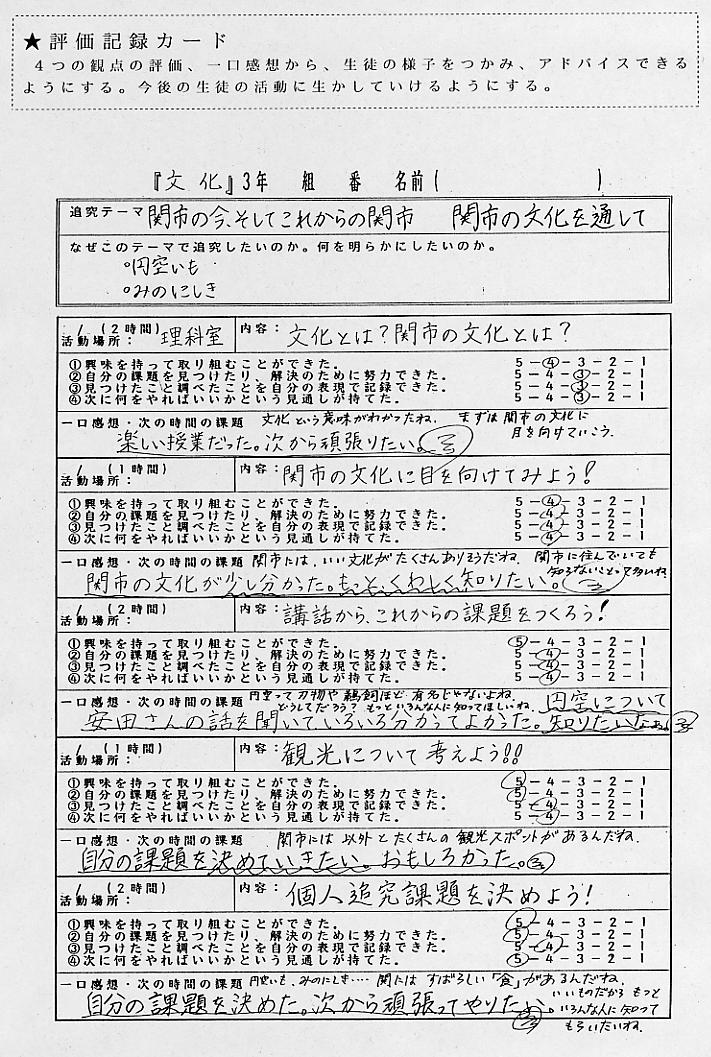 ★評価記録カード
4つの観点の評価、一口感想から、生徒の様子をつかみ、アドバイスできる
ようにする。今後の生徒の活動に生かしていけるようにする。
『文化』3年 組 番 名前( )
追究テーマ 関市の今、そしてこれからの関市 関市の文化を通して
なぜこのテーマで追究したいのか。何を明らかにしたいのか。
○円空いも
○みのにしき
/ (2時間) 理科室 内容: 文化とは?関市の文化とは?
活動場所:
①興味を持って取り組むことができた。 5-4-3-2-1
②自分の課題を見つけたり、解決のために努力できた。 5-4-3-2-1
③見つけたこと調べたことを自分の表現で記録できた。 5-4-3-2-1
④次に何をやればいいかという見通しが持てた。 5-4-3-2-1
一口感想・次の時間の課題 文化という意味がわかったね。 まずは関市の文化に
目を向けていこう。
楽しい授業だった。次から頑張りたい。
/ (1時間) 内容: 関市の文化に目を向けてみよう!
活動場所:
①興味を持って取り組むことができた。 5-4-3-2-1
②自分の課題を見つけたり、解決のために努力できた。 5-4-3-2-1
③見つけたこと調べたことを自分の表現で記録できた。 5-4-3-2-1
④次に何をやればいいかという見通しが持てた。 5-4-3-2-1
一口感想・次の時間の課題 関市には、いい文化がたくさんありそうだね。 関市に住んでいても
知らないこと 多いね
関市の文化が少し分かった。もっと、くわしく知りたい。
/ (2時間) 内容: 講話から、これからの課題をつくろう!
活動場所:
①興味を持って取り組むことができた。 5-4-3-2-1
②自分の課題を見つけたり、解決のために努力できた。 5-4-3-2-1
③見つけたこと調べたことを自分の表現で記録できた。 5-4-3-2-1
④次に何をやればいいかという見通しが持てた。 5-4-3-2-1
一口感想・次の時間の課題 円空って刃物や鵜飼ほど有名じゃないよね。 円空について
どうしてだろう? もっといろんな人に知ってほしいね。
安田さんの話を聞いて、いろいろ分かってよかった。知りたいなぁ
/ (1時間) 内容: 観光について考えよう!!
活動場所:
①興味を持って取り組むことができた。 5-4-3-2-1
②自分の課題を見つけたり、解決のために努力できた。 5-4-3-2-1
③見つけたこと調べたことを自分の表現で記録できた。 5-4-3-2-1
④次に何をやればいいかという見通しが持てた。 5-4-3-2-1
一口感想・次の時間の課題 関市には以外とたくさんの観光スポットがあるんだね。
自分の課題を決めていきたい。おもしろかった。
/ (2時間) 内容: 個人追究課題を決めよう!
活動場所:
①興味を持って取り組むことができた。 5-4-3-2-1
②自分の課題を見つけたり、解決のために努力できた。 5-4-3-2-1
③見つけたこと調べたことを自分の表現で記録できた。 5-4-3-2-1
④次に何をやればいいかという見通しが持てた。 5-4-3-2-1
一口感想・次の時間の課題 円空いも、みのにしき…. 関にはすばらしい「食」があるんだね。
いいものだから もっと
自分の課題を決めた。次から頑張ってやりたい。 いろんな人に知って
もらいたいね。